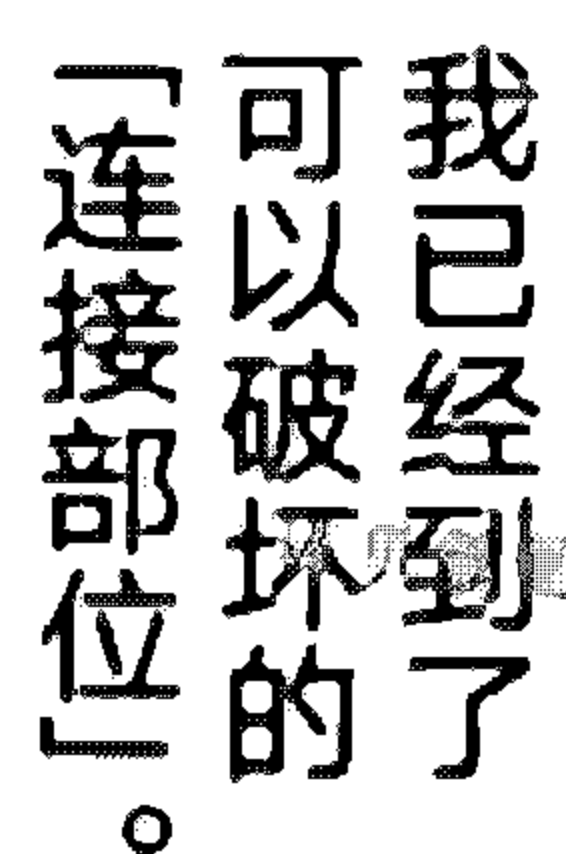 我已经到了
可以破坏的
「连接部位」。